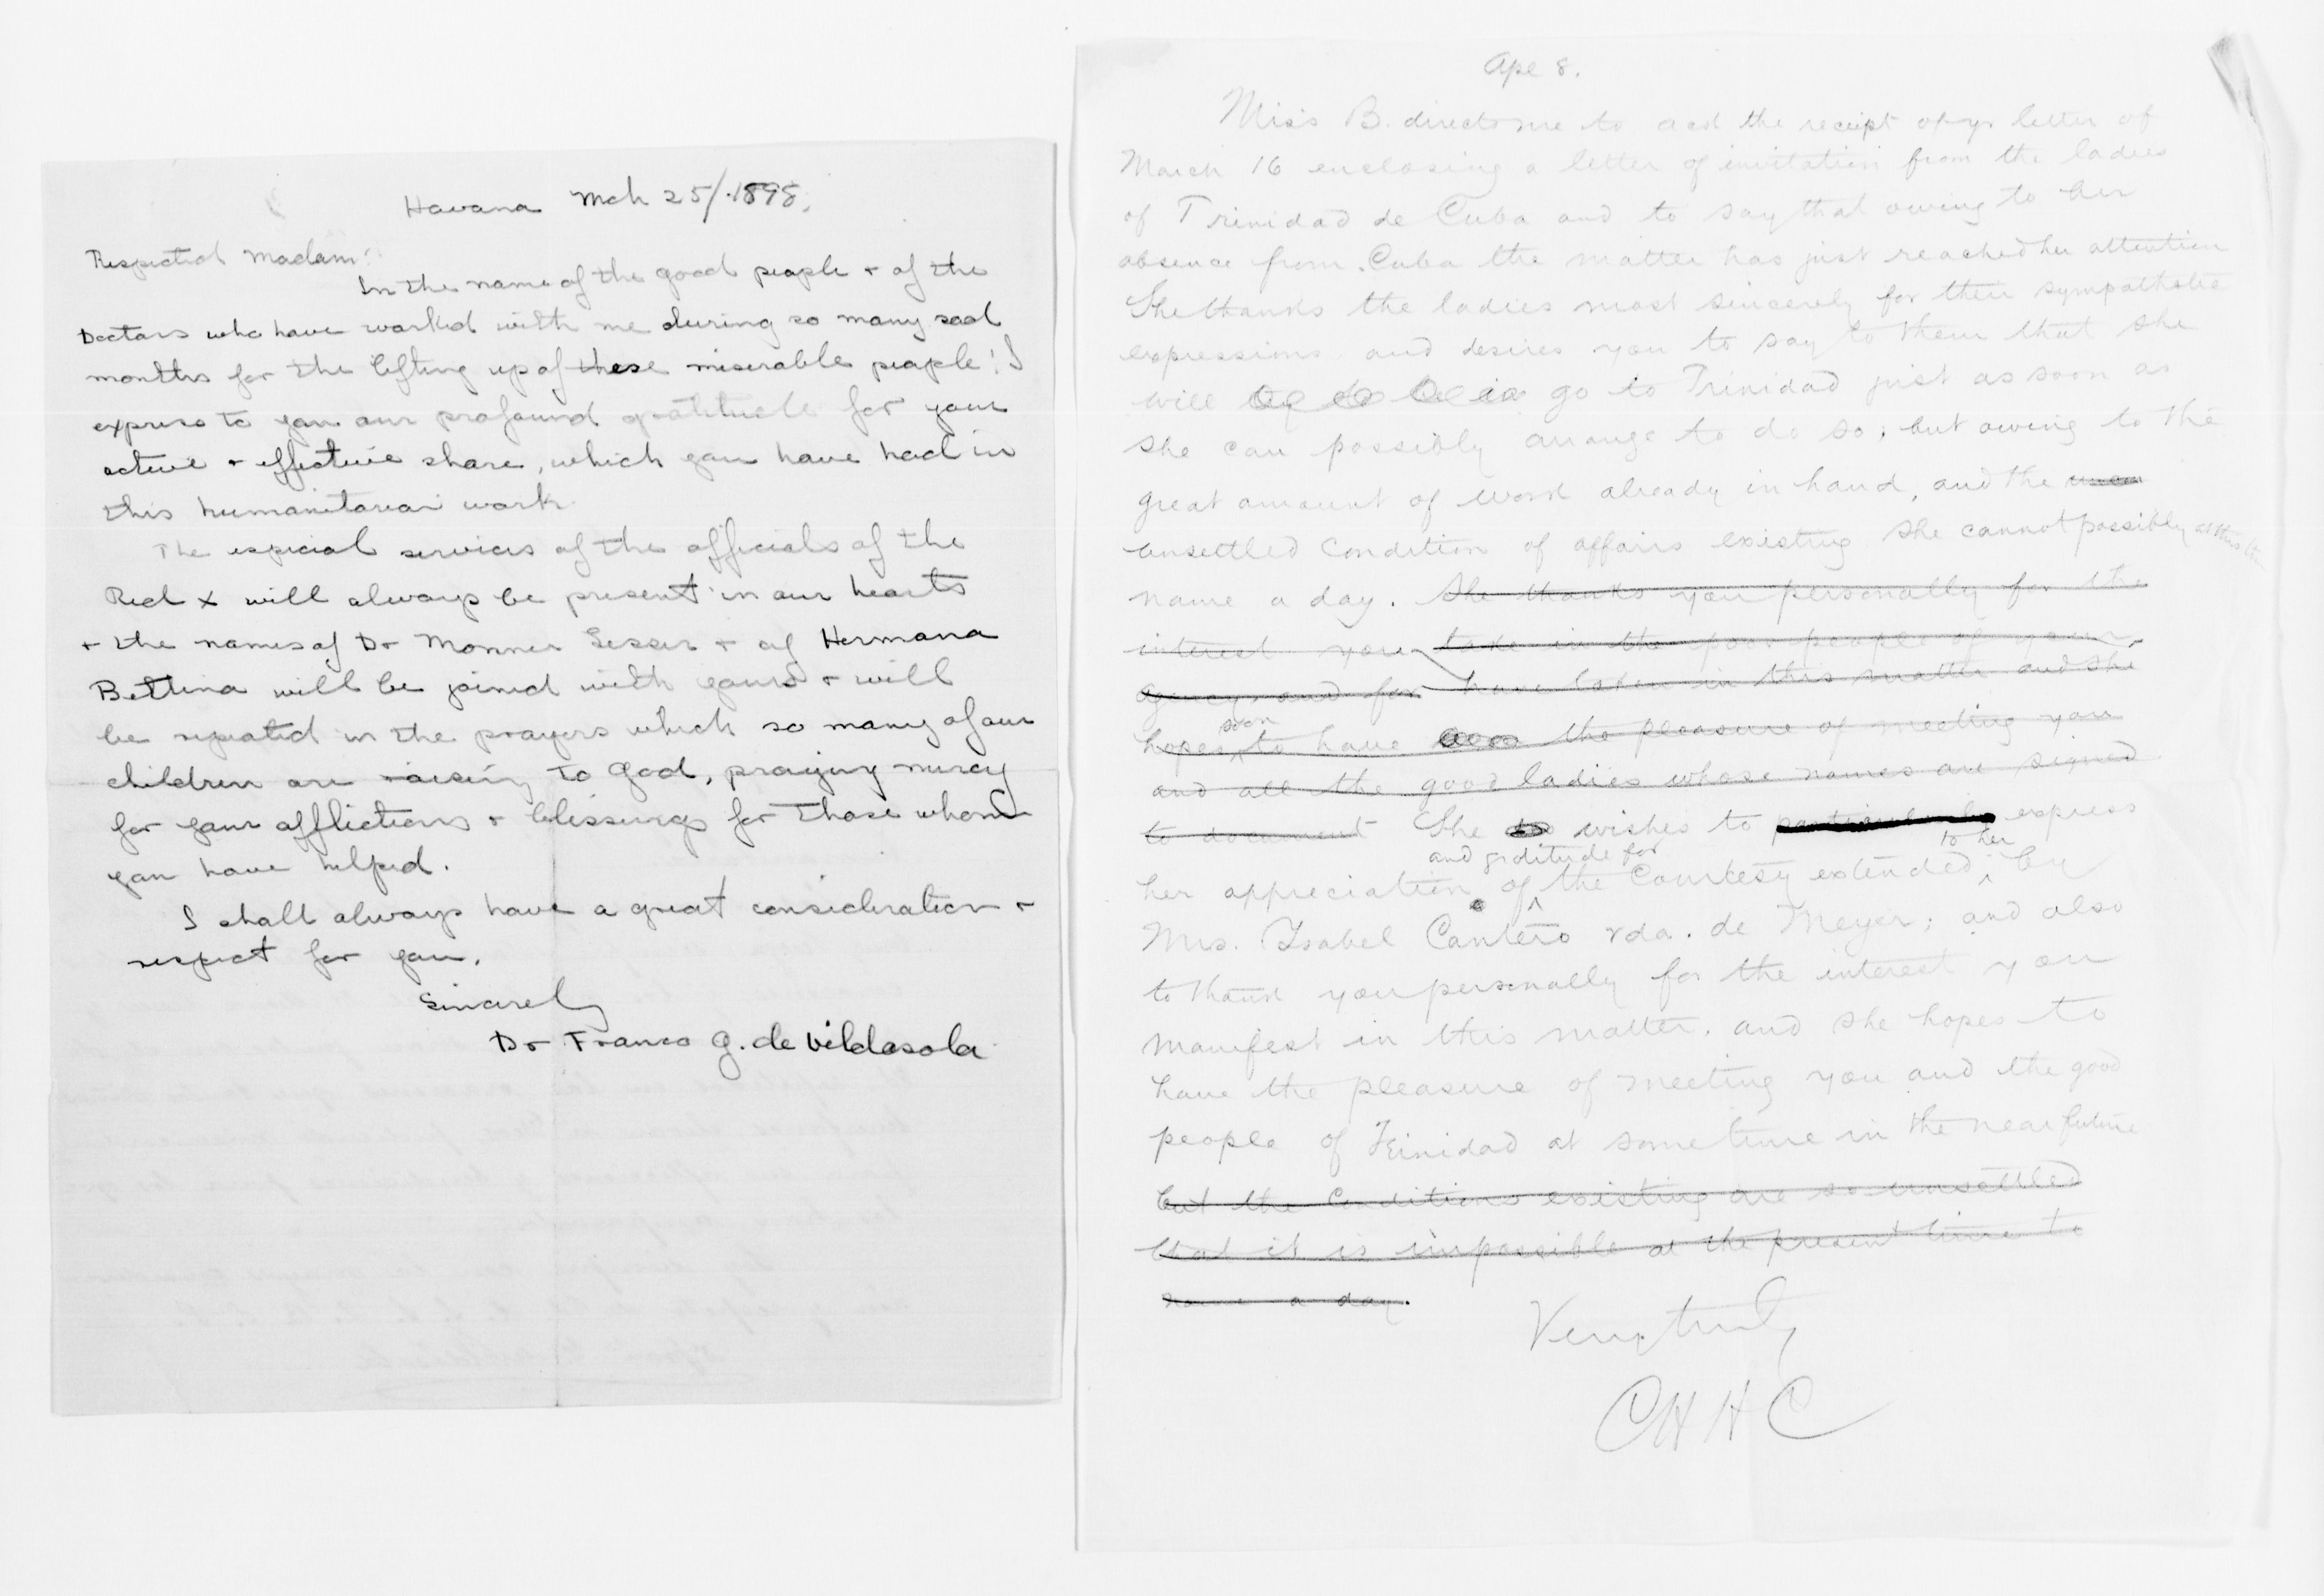 Havana Mch 25/.1898.
Respected Madam:
In the name of the good people + of the
Doctors who have worked with me during so many sad
months for the lifting up of these miserable people! I
express to you our profound gratitude for your
active + effective share, which you have had in
this humanitarian work.
The especial services of the officials of the
Red x will always be present in our hearts
+ the names of Dr Monner Lesser + of Hermana
Bettina will be joined with yours + will
be repeated in the prayers which so many of our
children are raising to God, praying mercy
for your afflictions + blessings for those whom
you have helped.
I shall always have a great consideration +
respect for you.
Sincerely
Dr Franco G. de Vildasola
Ape 8.
Miss B. directs me to ack the receipt of yr letter of
March 16 enclosing a letter of invitation from the ladies
of Trinidad de Cuba and to say that owing to her
absence from Cuba the matter has just reached her attention
She thanks the ladies most sincerely for their sympathetic
expressions and desires you to say to them that she
will go to Trinidad just as soon as
she can possibly arrange to do so; but owing to the
great amount of work already in hand, and the
unsettled condition of affairs existing she cannot possibly at this
name a day. She thanks you personally for the
interest you take in the poor people of your
agency, and for have taken in this matter and she
hopes soon to have the pleasure of meeting you
and all the good ladies whose names are signed
to document She wishes to particularly express
her appreciation and graditude for of the courtesy extended to her by
Mrs. Isabel Cantero vda. de Meyer; and also
to thank you personally for the interest you
manifest in this matter, and she hopes to
have the pleasure of meeting you and the good
people of Trinidad at some time in the near future
but the conditions existing are so unsettled
that it is impossible at the present time to
name a day.
Very truly
CHHC